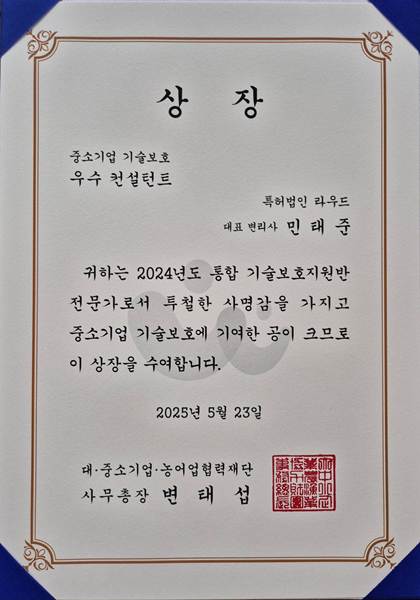 상 장
중소기업 기술보호
우수 컨설턴트
특허법인 라우드
대표 변리사 민 태 준
귀하는 2024년도 통합 기술보호지원반
전문가로서 투철한 사명감을 가지고
중소기업 기술보호에 기여한 공이 크므로
이 상장을 수여합니다.
2025년 5월 23일
대·중소기업·농어업협력재단
사무총장 변 태 섭